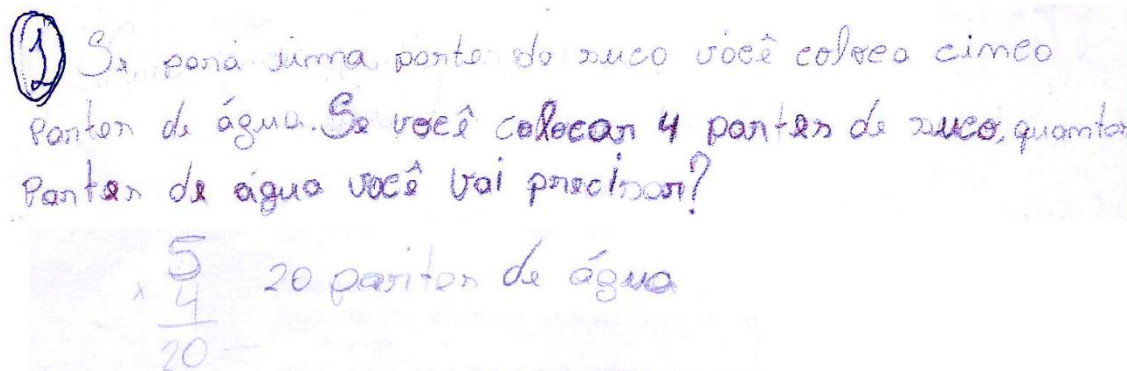 1 Se para uma parte do suco você coloca cinco
Partes de água. Se você colocar 4 partes de suco, quantas
Partes de água você vai precisar?
5 20 partes de água
x 4
20